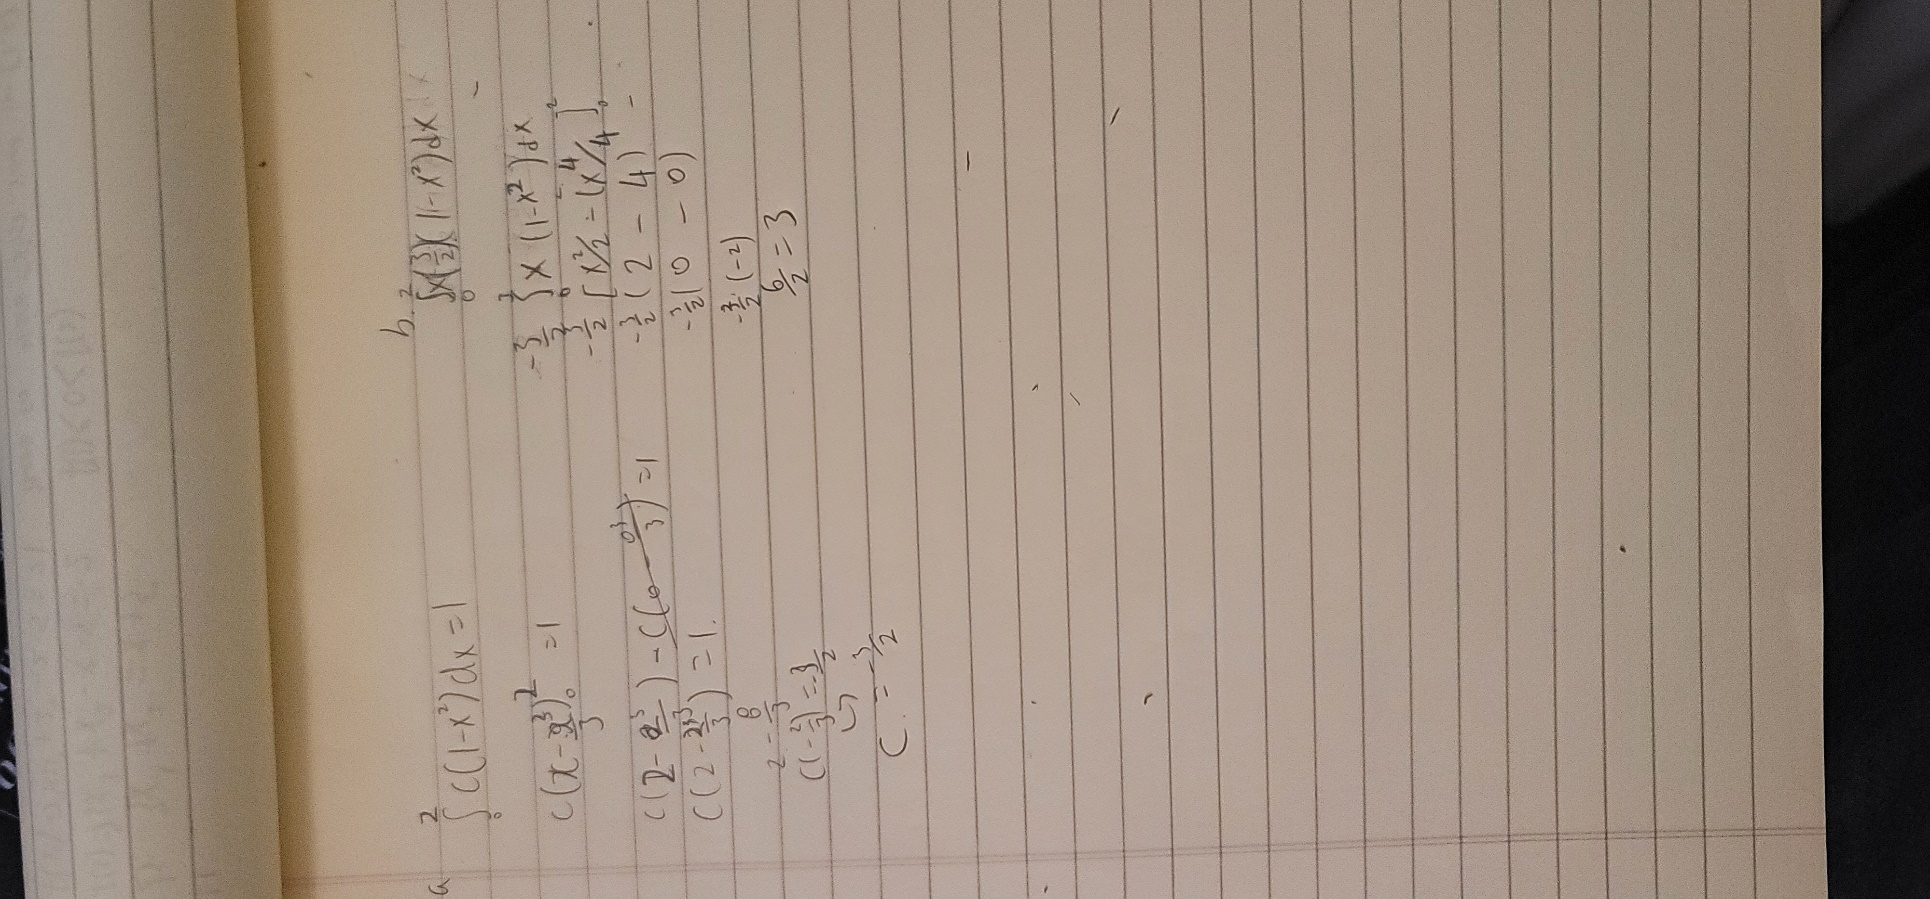 a
∫₀² c(1-x²)dx = 1
c(x - x³/3)₀² = 1
c(2 - 2³/3) - c(0 - 0³/3) = 1
c(2 - 2³/3) = 1.
2 - 8/3
c(-2/3) = -3/2
↳
c. = -3/2
b.
∫₀² x(3/2)(1-x²)dx
-3/2 ∫₀² x(1-x²)dx
-3/2 [x²/2 - (x⁴/4]₀²
-3/2 (2 - 4) -
-3/2 (0 - 0)
-3/2 (-2)
6/2 = 3